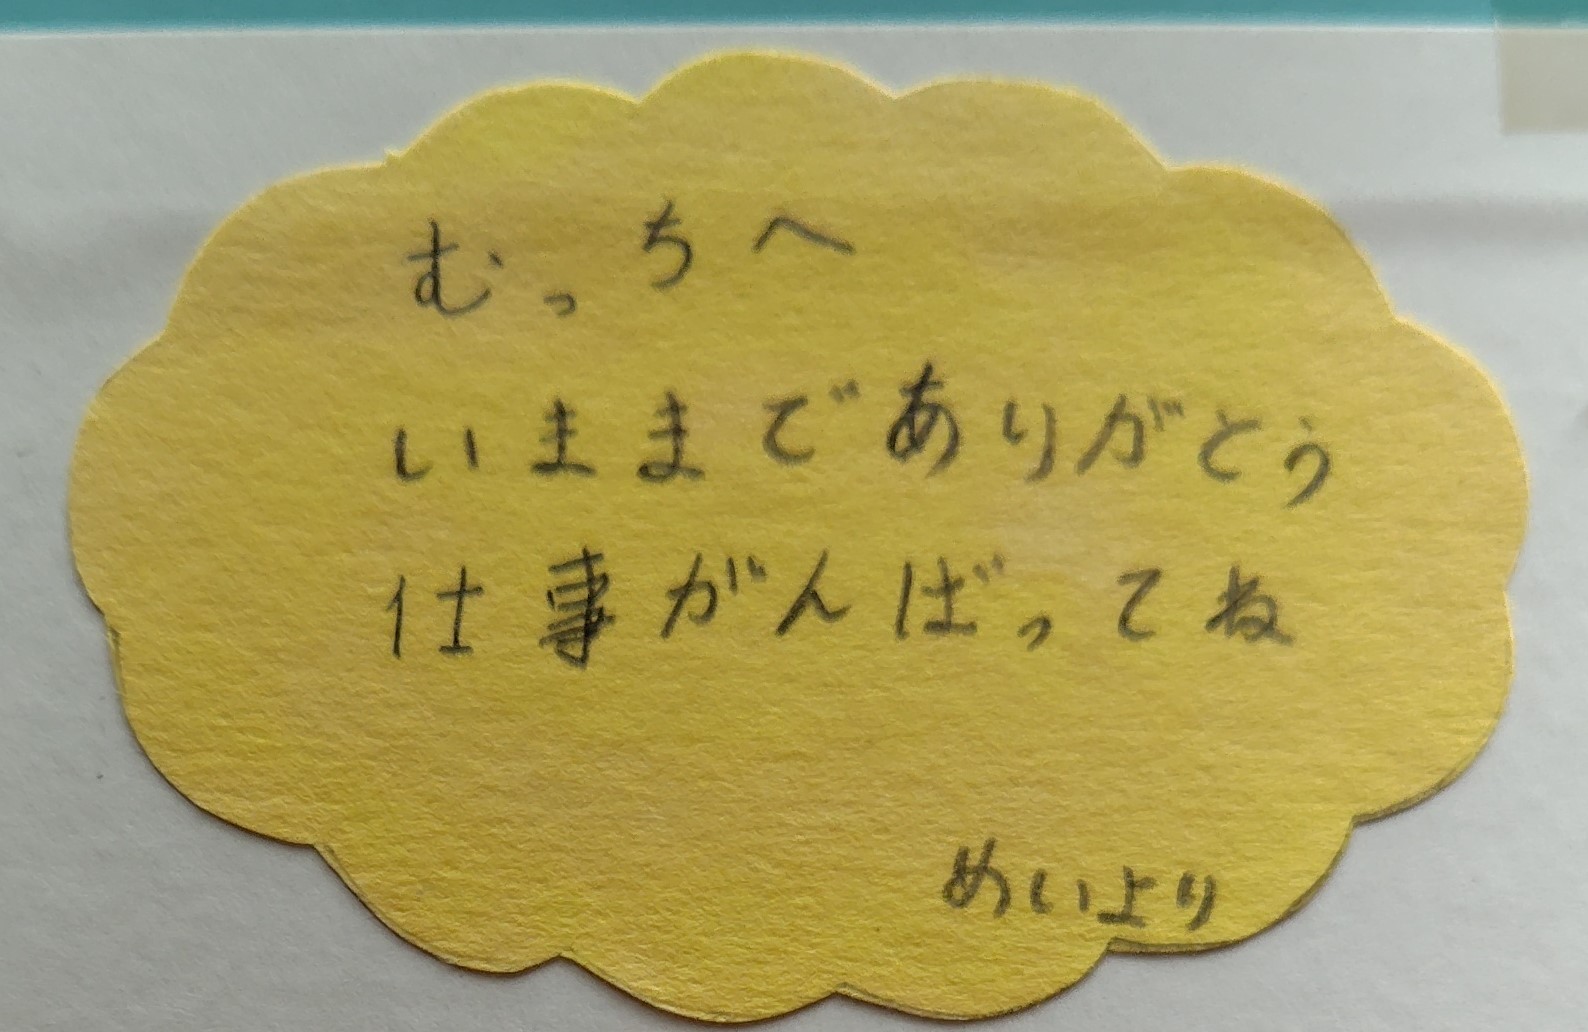 むっちへ
いままでありがとう
仕事がんばってね
めいより